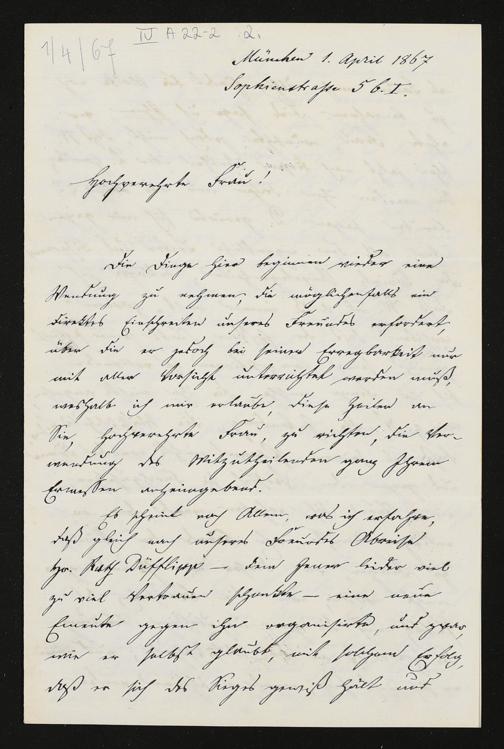 1/4/67 IV A 22-2 2.
München 1. April 1867
Sophienstrasse 5 b. I.
Hochverehrte Frau!
Die Dinge hier beginnen wieder eine
Wendung zu nehmen, die möglichenfalls ein
direktes Einschreiten unseres Freundes erfordert,
über die er jedoch bei seiner Erregbarkeit nur
mit aller Vorsicht unterrichtet werden muß,
weshalb ich mir erlaube, diese Zeilen an
Sie, hochverehrte Frau, zu richten, die Ver-
wendung des Mitzutheilenden ganz Ihrem
Ermessen anheimgebend.
Es scheint nach Allem, was ich erfahre,
daß gleich nach unseres Freundes Abreise
Hr. Rath Düfflipp — dem Jener leider viel
zu viel Vertrauen schenkte — eine neue
Emeute gegen ihn organisirte, und zwar,
wie er selbst glaubt, mit solchem Erfolg,
daß er sich des Sieges gewiß hält und